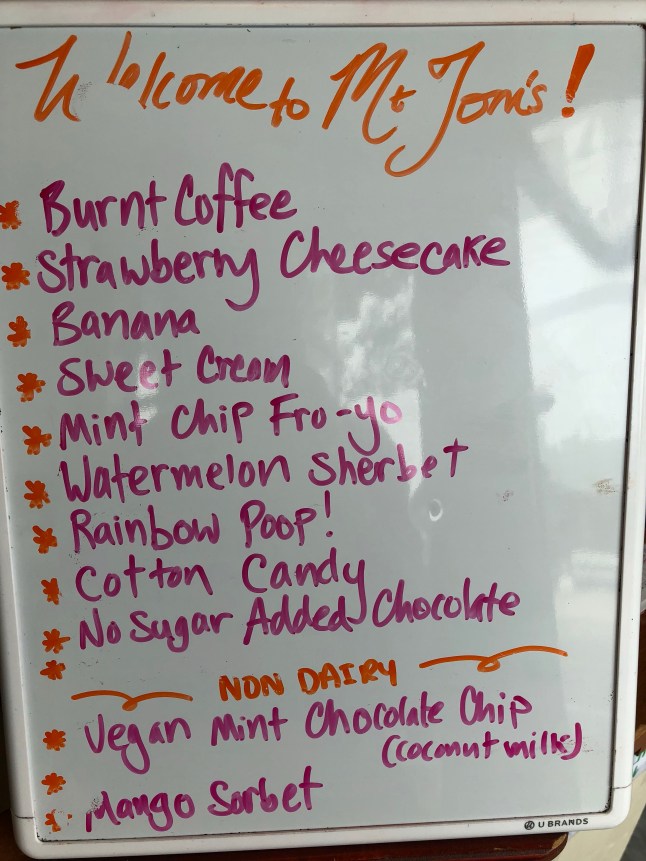 Welcome to Mt Tom's!
Burnt Coffee
Strawberry Cheesecake
Banana
Sweet Cream
Mint Chip Fro-yo
Watermelon Sherbet
Rainbow Poop!
Cotton Candy
No Sugar Added Chocolate
NON DAIRY
Vegan Mint Chocolate Chip
(coconut milk)
Mango Sorbet
U BRANDS